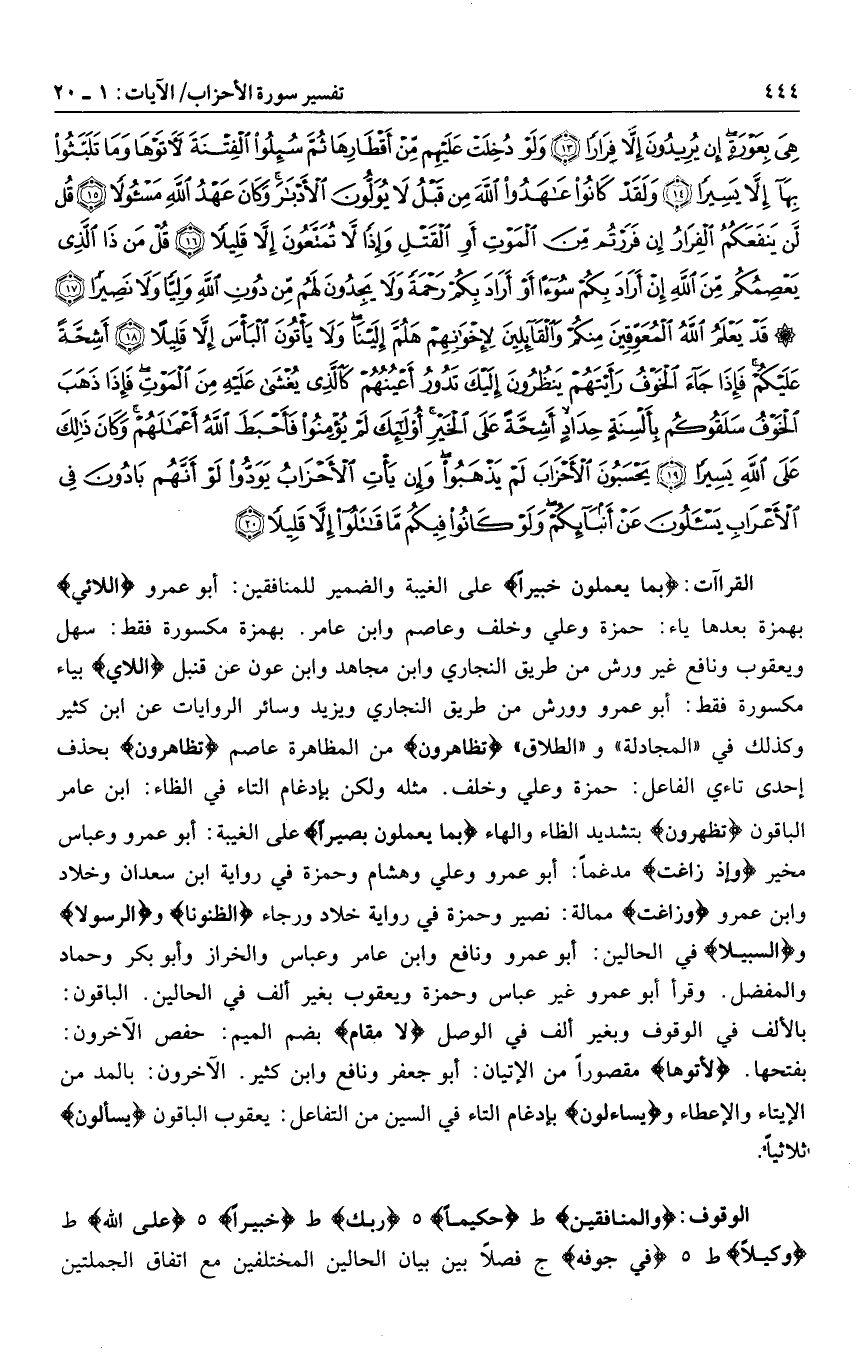 ٤٤٤ تفسير سورة الأحزاب/ الآيات: ١ ـ ٢٠
هِيَ بِعَوْرَةٍ إِن يُرِيدُونَ إِلَّا فِرَارًا ﴿١٣﴾ وَلَوْ دُخِلَتْ عَلَيْهِم مِّنْ أَقْطَارِهَا ثُمَّ سُئِلُوا۟ ٱلْفِتْنَةَ لَآتَوْهَا وَمَا تَلَبَّثُوا۟
بِهَآ إِلَّا يَسِيرًا ﴿١٤﴾ وَلَقَدْ كَانُوا۟ عَٰهَدُوا۟ ٱللَّهَ مِن قَبْلُ لَا يُوَلُّونَ ٱلْأَدْبَٰرَ وَكَانَ عَهْدُ ٱللَّهِ مَسْـُٔولًا ﴿١٥﴾ قُل
لَّن يَنفَعَكُمُ ٱلْفِرَارُ إِن فَرَرْتُم مِّنَ ٱلْمَوْتِ أَوِ ٱلْقَتْلِ وَإِذًا لَّا تُمَتَّعُونَ إِلَّا قَلِيلًا ﴿١٦﴾ قُلْ مَن ذَا ٱلَّذِى
يَعْصِمُكُم مِّنَ ٱللَّهِ إِنْ أَرَادَ بِكُمْ سُوٓءًا أَوْ أَرَادَ بِكُمْ رَحْمَةً وَلَا يَجِدُونَ لَهُم مِّن دُونِ ٱللَّهِ وَلِيًّا وَلَا نَصِيرًا ﴿١٧﴾
۞ قَدْ يَعْلَمُ ٱللَّهُ ٱلْمُعَوِّقِينَ مِنكُمْ وَٱلْقَآئِلِينَ لِإِخْوَٰنِهِمْ هَلُمَّ إِلَيْنَا وَلَا يَأْتُونَ ٱلْبَأْسَ إِلَّا قَلِيلًا ﴿١٨﴾ أَشِحَّةً
عَلَيْكُمْ فَإِذَا جَآءَ ٱلْخَوْفُ رَأَيْتَهُمْ يَنظُرُونَ إِلَيْكَ تَدُورُ أَعْيُنُهُمْ كَٱلَّذِى يُغْشَىٰ عَلَيْهِ مِنَ ٱلْمَوْتِ فَإِذَا ذَهَبَ
ٱلْخَوْفُ سَلَقُوكُم بِأَلْسِنَةٍ حِدَادٍ أَشِحَّةً عَلَى ٱلْخَيْرِ أُو۟لَٰٓئِكَ لَمْ يُؤْمِنُوا۟ فَأَحْبَطَ ٱللَّهُ أَعْمَٰلَهُمْ وَكَانَ ذَٰلِكَ
عَلَى ٱللَّهِ يَسِيرًا ﴿١٩﴾ يَحْسَبُونَ ٱلْأَحْزَابَ لَمْ يَذْهَبُوا۟ وَإِن يَأْتِ ٱلْأَحْزَابُ يَوَدُّوا۟ لَوْ أَنَّهُم بَادُونَ فِى
ٱلْأَعْرَابِ يَسْـَٔلُونَ عَنْ أَنۢبَآئِكُمْ وَلَوْ كَانُوا۟ فِيكُم مَّا قَٰتَلُوٓا۟ إِلَّا قَلِيلًا ﴿٢٠﴾
القراآت: ﴿بما يعملون خبيراً﴾ على الغيبة والضمير للمنافقين: أبو عمرو ﴿اللائي﴾
بهمزة بعدها ياء: حمزة وعلي وخلف وعاصم وابن عامر. بهمزة مكسورة فقط: سهل
ويعقوب ونافع غير ورش من طريق النجاري وابن مجاهد وابن عون عن قنبل ﴿اللاي﴾ بياء
مكسورة فقط: أبو عمرو وورش من طريق النجاري ويزيد وسائر الروايات عن ابن كثير
وكذلك في «المجادلة» و «الطلاق» ﴿تظاهرون﴾ من المظاهرة عاصم ﴿تظاهرون﴾ بحذف
إحدى تاءي الفاعل: حمزة وعلي وخلف. مثله ولكن بإدغام التاء في الظاء: ابن عامر
الباقون ﴿تظهرون﴾ بتشديد الظاء والهاء ﴿بما يعملون بصيراً﴾ على الغيبة: أبو عمرو وعباس
مخير ﴿وإذ زاغت﴾ مدغماً: أبو عمرو وعلي وهشام وحمزة في رواية ابن سعدان وخلاد
وابن عمرو ﴿وزاغت﴾ ممالة: نصير وحمزة في رواية خلاد ورجاء ﴿الظنونا﴾ و﴿الرسولا﴾
و﴿السبيلا﴾ في الحالين: أبو عمرو ونافع وابن عامر وعباس والخراز وأبو بكر وحماد
والمفضل. وقرأ أبو عمرو غير عباس وحمزة ويعقوب بغير ألف في الحالين. الباقون:
بالألف في الوقوف وبغير ألف في الوصل ﴿لا مقام﴾ بضم الميم: حفص الآخرون:
بفتحها. ﴿لأتوها﴾ مقصوراً من الإتيان: أبو جعفر ونافع وابن كثير. الآخرون: بالمد من
الإيتاء والإعطاء و﴿يساءلون﴾ بإدغام التاء في السين من التفاعل: يعقوب الباقون ﴿يسألون﴾
ثلاثياً.
الوقوف: ﴿والمنافقين﴾ ط ﴿حكيماً﴾ ٥ ﴿ربك﴾ ط ﴿خبيراً﴾ ٥ ﴿على الله﴾ ط
﴿وكيلاً﴾ ط ٥ ﴿في جوفه﴾ ج فصلاً بين بيان الحالين المختلفين مع اتفاق الجملتين